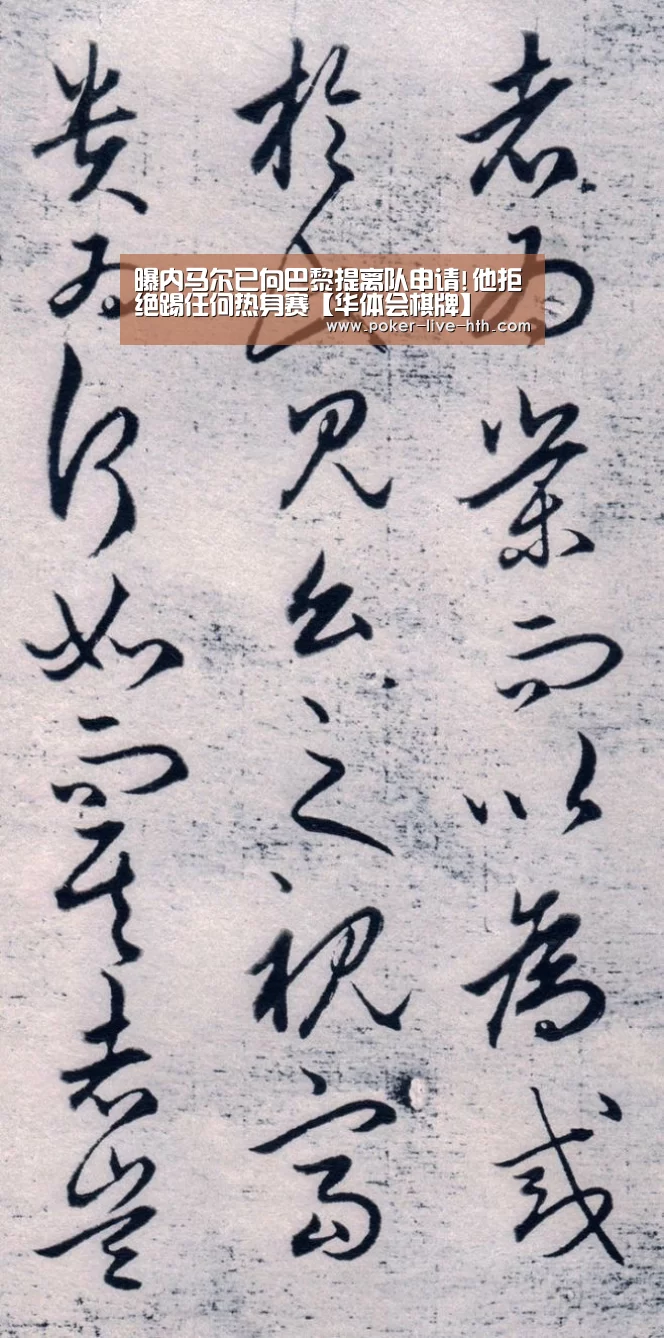 者為業而以為或
於人見公之視富
貴為何如而其者豈
曝内马尔已向巴黎提离队申请!他拒
绝踢任何热身赛【华体会棋牌】
www.poker-live-hth.com